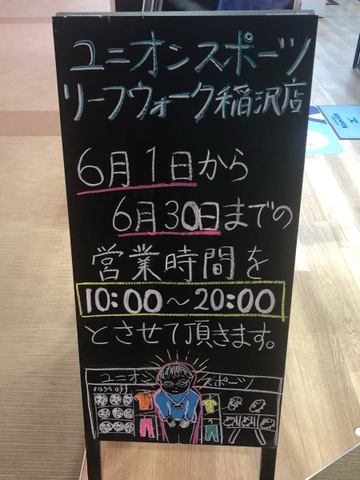 ユニオンスポーツ
リーフウォーク稲沢店
6月1日から
6月30日までの
営業時間を
10:00〜20:00
とさせて頂きます。
ユニオンスポーツ